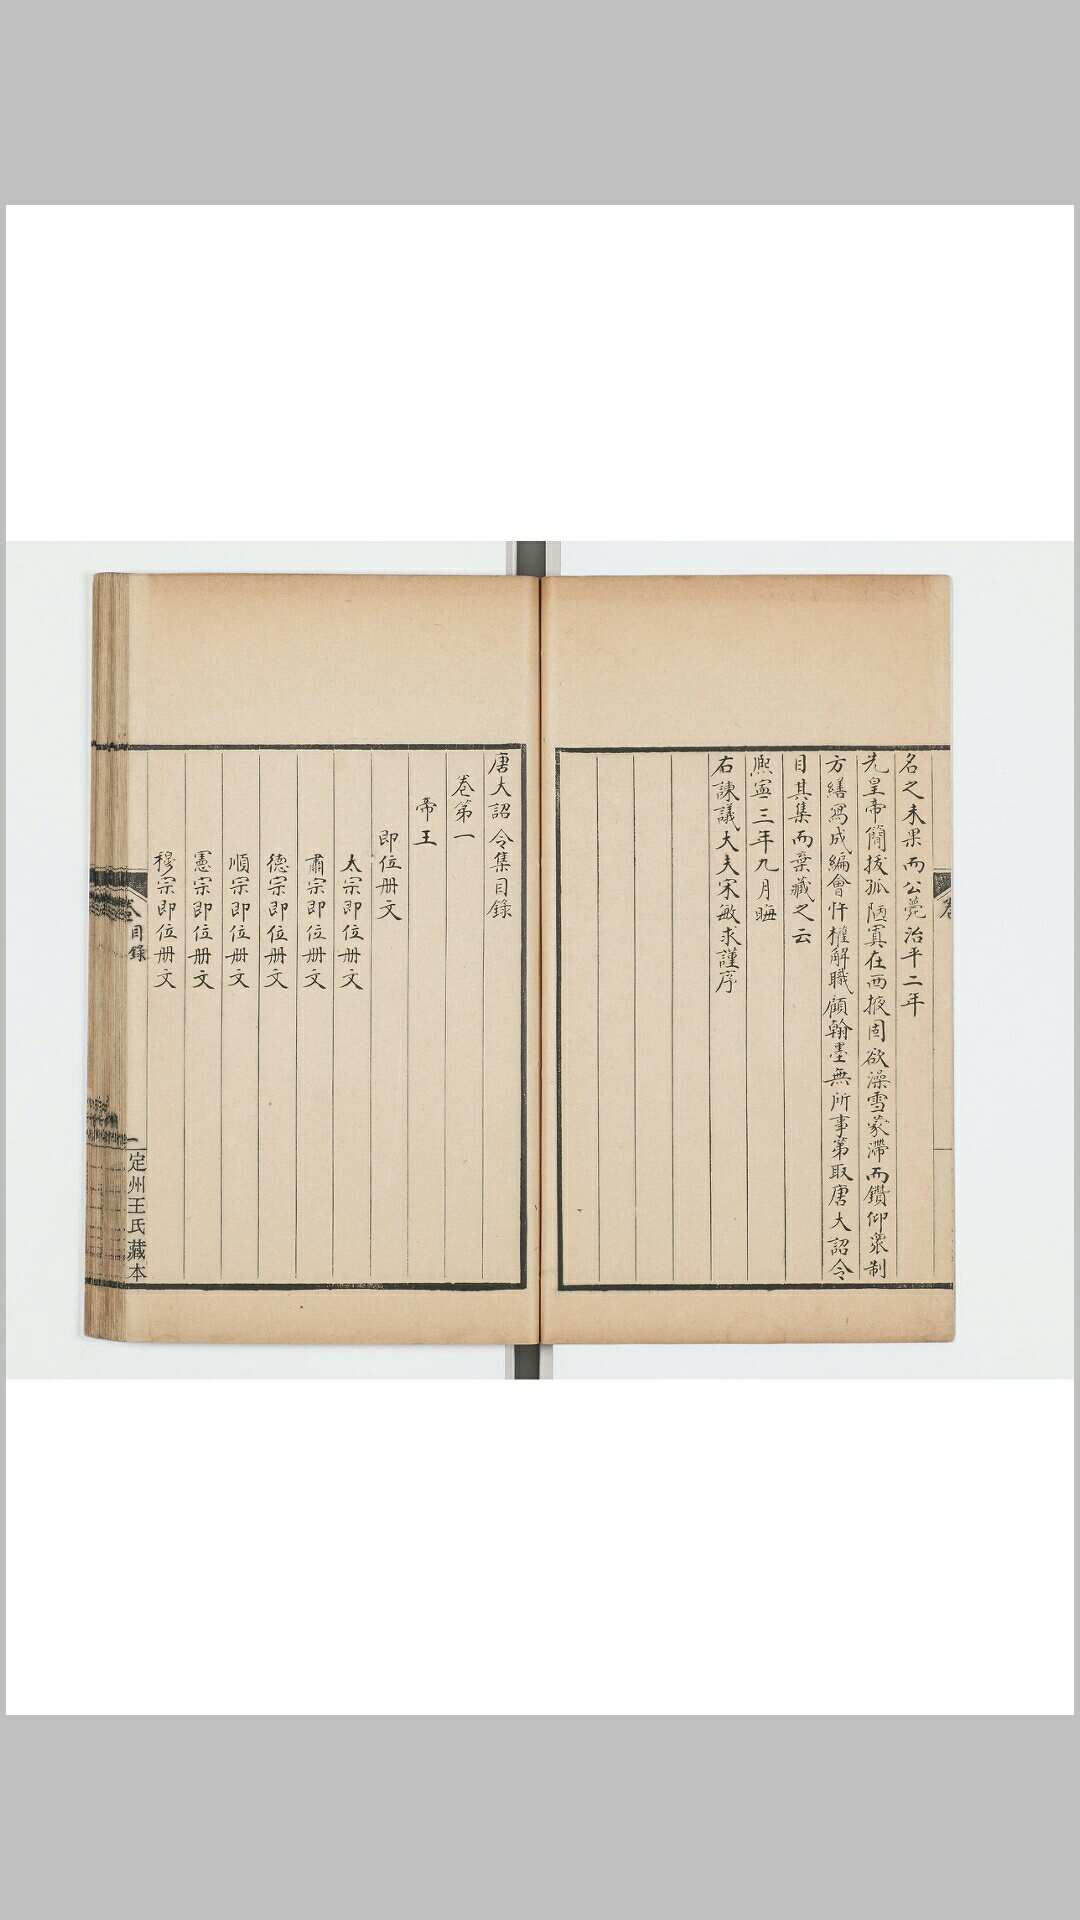 名之未果而公薨治平二年
先皇帝簡拔孤陋寘在西掖固欲澡雪蒙滯而鑽仰衆制
方繕寫成編會忤權解職顧翰墨無所事第取唐大詔令
目其集而棄藏之云
熙寧三年九月晦
右諫議大夫宋敏求謹序
唐大詔令集目錄
卷第一
帝王
即位册文
太宗即位册文
肅宗即位册文
德宗即位册文
順宗即位册文
憲宗即位册文
穆宗即位册文
目錄
一
定州王氏藏本